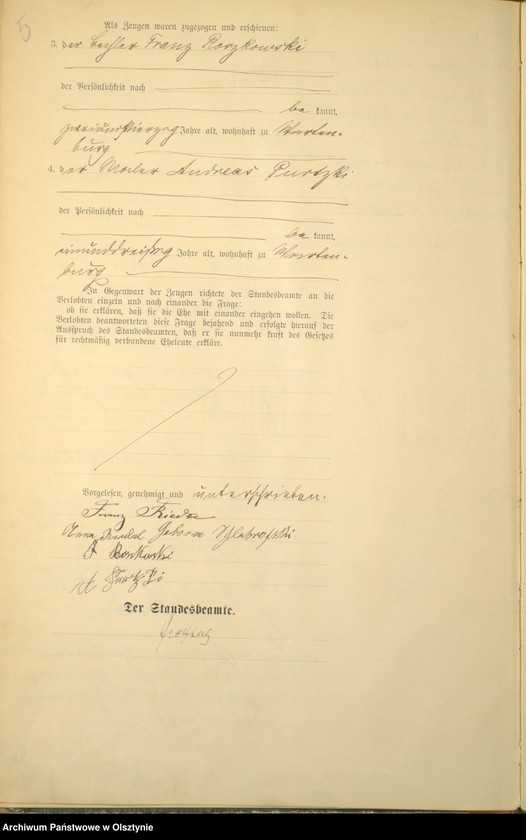 5
Als Zeugen waren zugezogen und erschienen:
3. der Tischler Franz Korzkowski
der Persönlichkeit nach
be kannt,
zweiundvierzig Jahre alt, wohnhaft zu Warten-
burg
4. der Maler Andreas Purtzki
der Persönlichkeit nach
be kannt,
einunddreißig Jahre alt, wohnhaft zu Warten-
burg
In Gegenwart der Zeugen richtete der Standesbeamte an die
Verlobten einzeln und nach einander die Frage:
ob sie erklären, daß sie die Ehe mit einander eingehen wollen. Die
Verlobten beantworteten diese Frage bejahend und erfolgte hierauf der
Ausspruch des Standesbeamten, daß er sie nunmehr kraft des Gesetzes
für rechtmäßig verbundene Eheleute erkläre.
Vorgelesen, genehmigt und unterschrieben.
Franz
Anna geborne
A Purtzki
Der Standesbeamte.
Archiwum Państwowe w Olsztynie